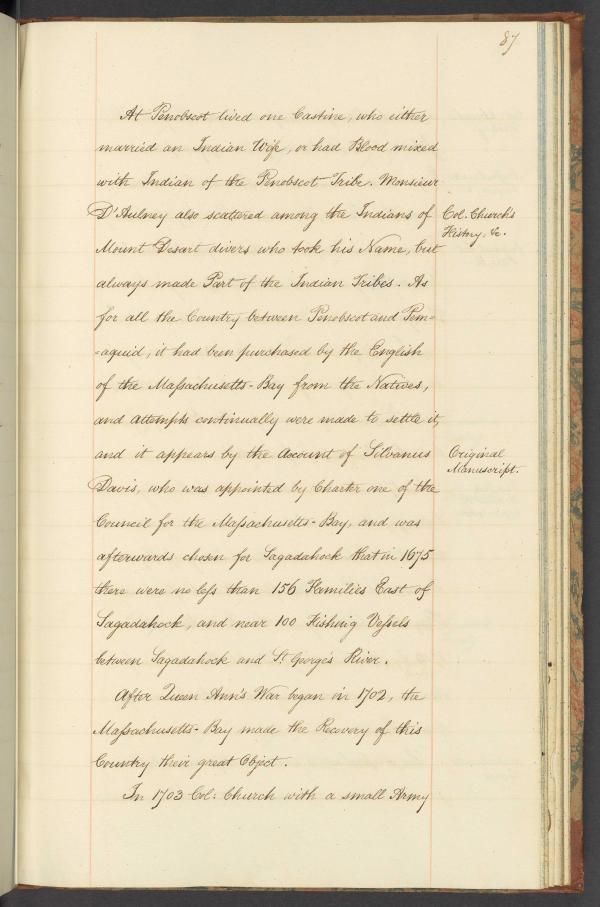 87
At Penobscot lived one Castine, who either
married an Indian Wife, or had Blood mixed
with Indian of the Penobscot Tribe. Monsieur
D'Aulney also scattered among the Indians of
Col. Church's
Mount Desart divers who took his Name, but
History, &c.
always made Part of the Indian Tribes. As
for all the Country between Penobscot and Pem=
=aquid, it had been purchased by the English
of the Massachusetts-Bay from the Natives,
and attempts continually were made to settle it,
and it appears by the Account of Silvanus
Original
Manuscript.
Davis, who was appointed by Charter one of the
Council for the Massachusetts-Bay, and was
afterwards chosen for Sagadahock that in 1675
there were no less than 156 Families East of
Sagadahock, and near 100 Fishing Vessels
between Sagadahock and St. George's River.
After Queen Ann's War began in 1702, the
Massachusetts-Bay made the Recovery of this
Country their great Object.
In 1703 Col: Church with a small Army